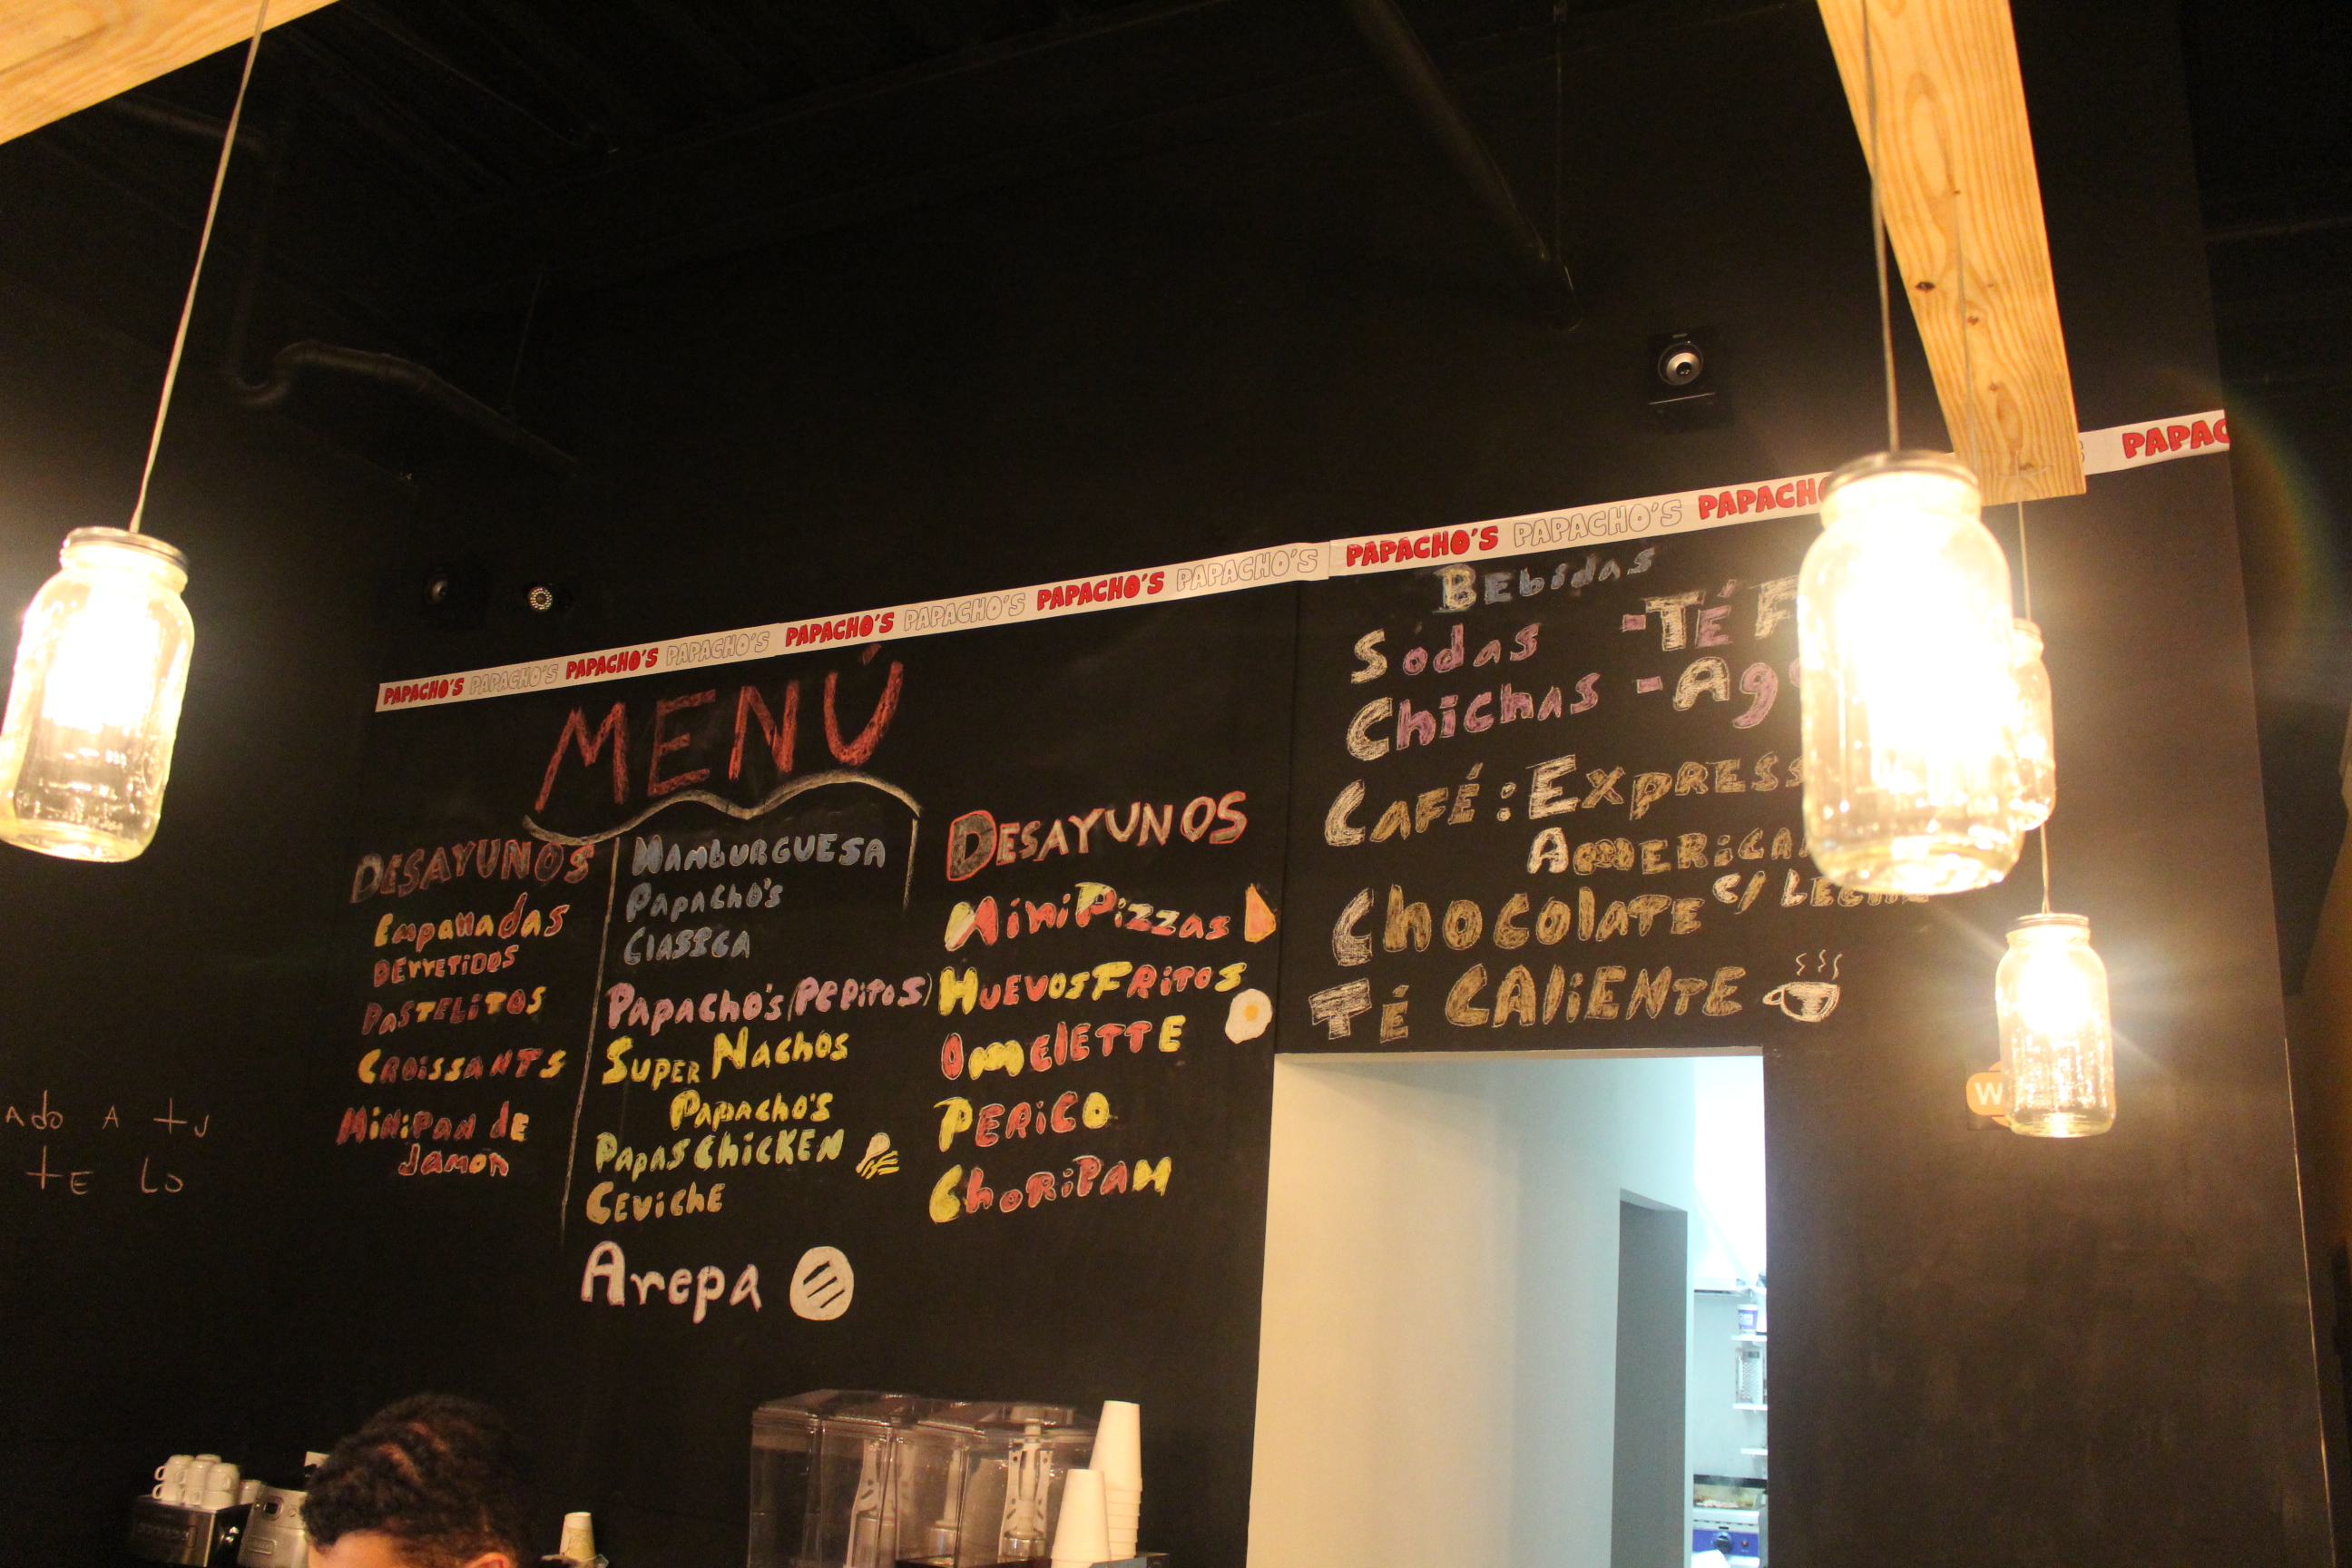 PAPACHO'S PAPACHO'S PAPACHO'S PAPACHO'S PAPACHO'S PAPACHO'S PAPACHO'S PAPACHO'S PAPACHO'S PAPACHO'S
MENÚ
DESAYUNOS
Empanadas
DErretidos
PASTELitos
CROissANTS
MiNiPAN dE
Jamón
HAMBURGUESA
Papacho's
CLASSICA
Papacho's (PEPitos)
SUPER NAchos
Papacho's
PapasChicKEN
CEVichE
Arepa
DESAYUNOS
MiniPizzas
HUEVOSFRitos
OmelETTE
PERiCO
ChoRiPAN
BEbidas
Sodas -TÉ
Chichas
CAFÉ: ExpRESS
AMERiCA
ChocolATE c/ LECHE
TÉ CALiENTE
Ado A tu
tE Lo
W